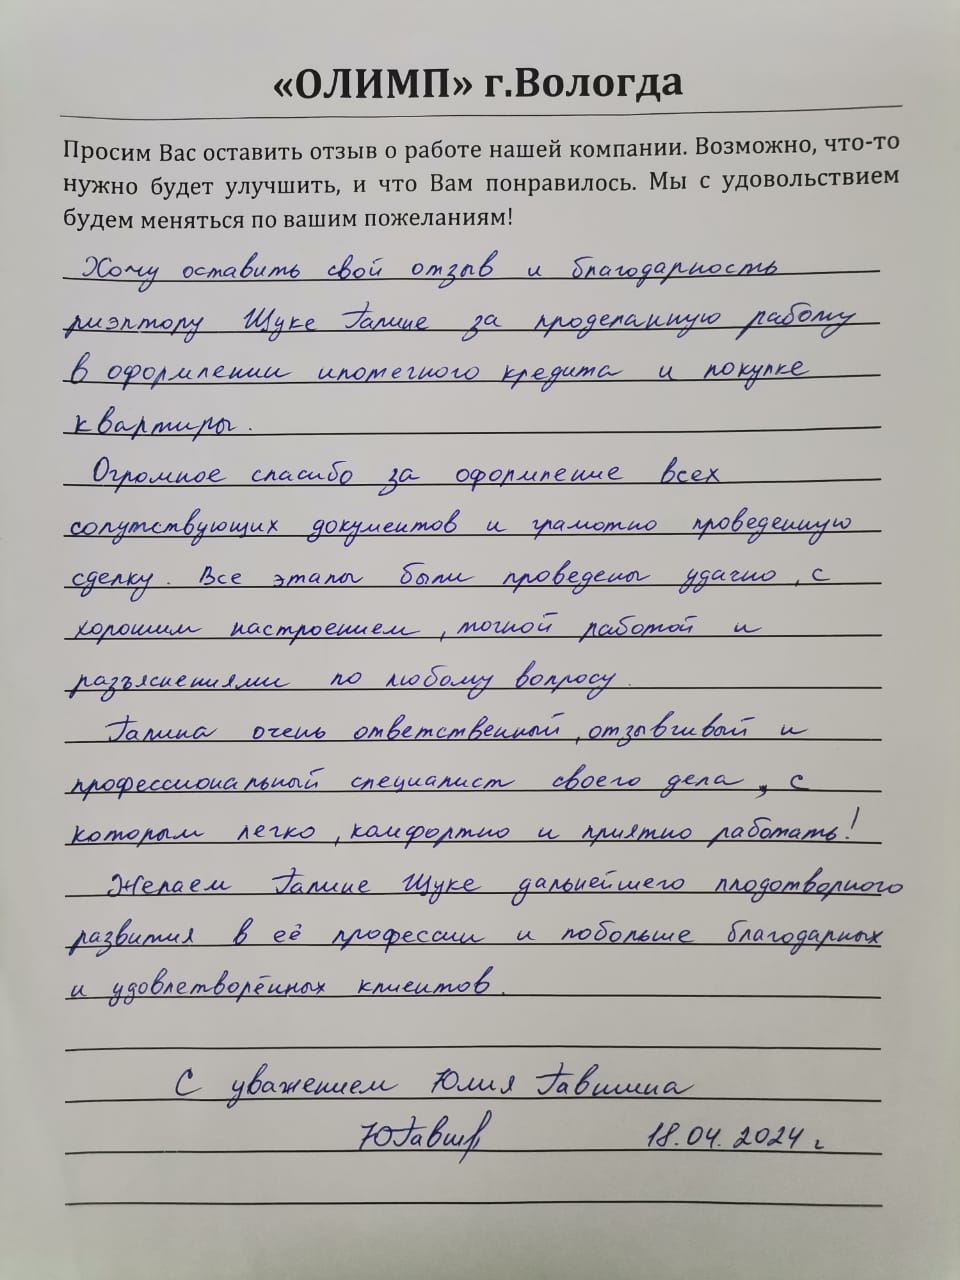 «ОЛИМП» г.Вологда
Просим Вас оставить отзыв о работе нашей компании. Возможно, что-то
нужно будет улучшить, и что Вам понравилось. Мы с удовольствием
будем меняться по вашим пожеланиям!
Хочу оставить свой отзыв и благодарность
риэлтору Щуке Галине за проделанную работу
в оформлении ипотечного кредита и покупке
квартиры.
Огромное спасибо за оформление всех
сопутствующих документов и грамотно проведенную
сделку. Все этапы были проведены удачно, с
хорошим настроением, точной работой и
разъяснениями по любому вопросу.
Галина очень ответственный, отзывчивый и
профессиональный специалист своего дела, с
которым легко, комфортно и приятно работать!
Желаем Галине Щуке дальнейшего плодотворного
развития в её профессии и побольше благодарных
и удовлетворённых клиентов.
С уважением Юлия Гавшина
18.04.2024 г